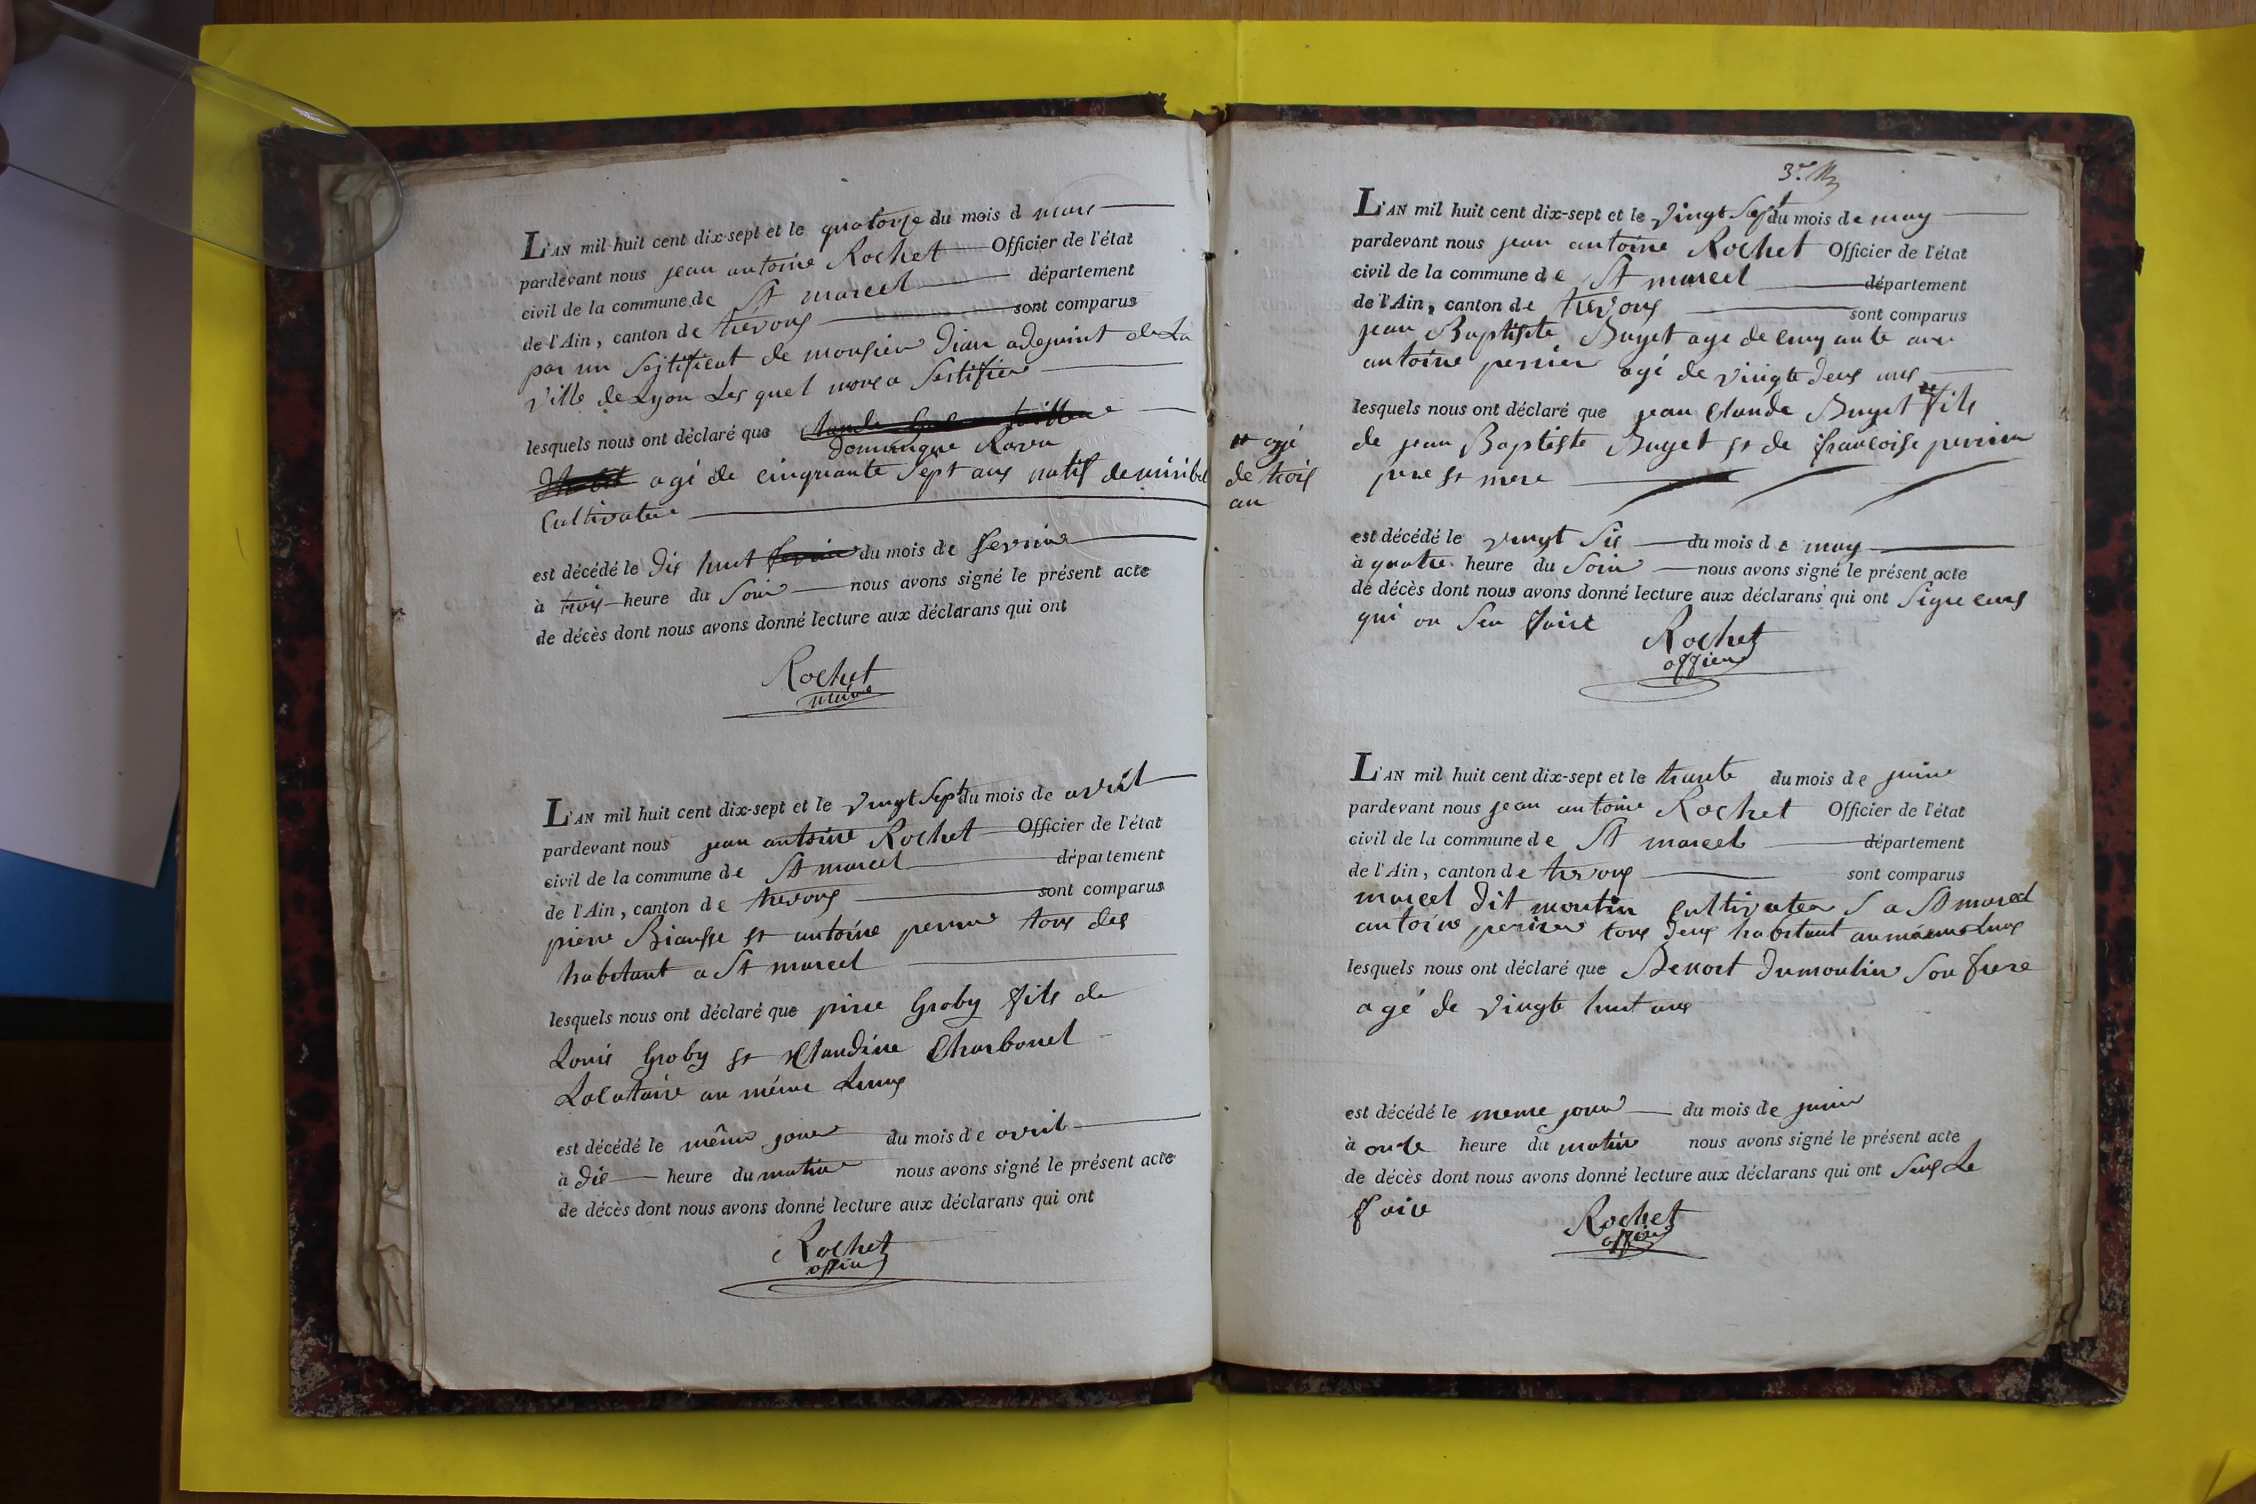 L'AN mil huit cent dix-sept et le quatorze du mois d mars
pardevant nous jean antoine Rochet Officier de l'état
civil de la commune de St marcel département
de l'Ain, canton de trevoux sont comparus
par un de monsieur adejoint de La
ville de Lyon Les quel nous a
lesquels nous ont déclaré que
domingue
agé de cinquante sept ans natif de miribel
Cultivateur
est décédé le dix huit du mois de fevrier
à trois heure du Soir nous avons signé le présent acte
de décès dont nous avons donné lecture aux déclarans qui ont
Rochet
maire
L'AN mil huit cent dix-sept et le vingt Sept du mois de avril
pardevant nous jean antoine Rochet Officier de l'état
civil de la commune de St marcel département
de l'Ain, canton de trevoux sont comparus
pierre et antoine perrier tous des
habitant a St marcel
lesquels nous ont déclaré que pirre Groby fils de
Louis Groby et Claudine Charbonet
au méme
est décédé le méme jour du mois de avril
à dix heure du matin nous avons signé le présent acte
de décès dont nous avons donné lecture aux déclarans qui ont
Rochet
officier
L'AN mil huit cent dix-sept et le vingt Sept du mois de may
pardevant nous jean antoine Rochet Officier de l'état
civil de la commune de St marcel département
de l'Ain, canton de trevoux sont comparus
jean Baptiste Buget agé de cinquante ans
antoine perrier agé de vingte deux ans
lesquels nous ont déclaré que jean Claude Buget fils
de jean Baptiste Buget et de francoise perrier
pere et mere
agé
de trois
an
est décédé le vingt Six du mois de may
à quatre heure du Soir nous avons signé le présent acte
de décès dont nous avons donné lecture aux déclarans qui ont
qui on Seu faire
Rochet
officier
L'AN mil huit cent dix-sept et le trante du mois de juin
pardevant nous jean antoine Rochet Officier de l'état
civil de la commune de St marcel département
de l'Ain, canton de trevoux sont comparus
marcel Dit moulin Cultivateur a St marcel
antoine perrier tous deux habitant au
lesquels nous ont déclaré que Benoit Dumoulin Son frere
agé de vingte huit ans
est décédé le meme jour du mois de juin
à onze heure du matin nous avons signé le présent acte
de décès dont nous avons donné lecture aux déclarans qui ont Seus Le
faire
Rochet
officier